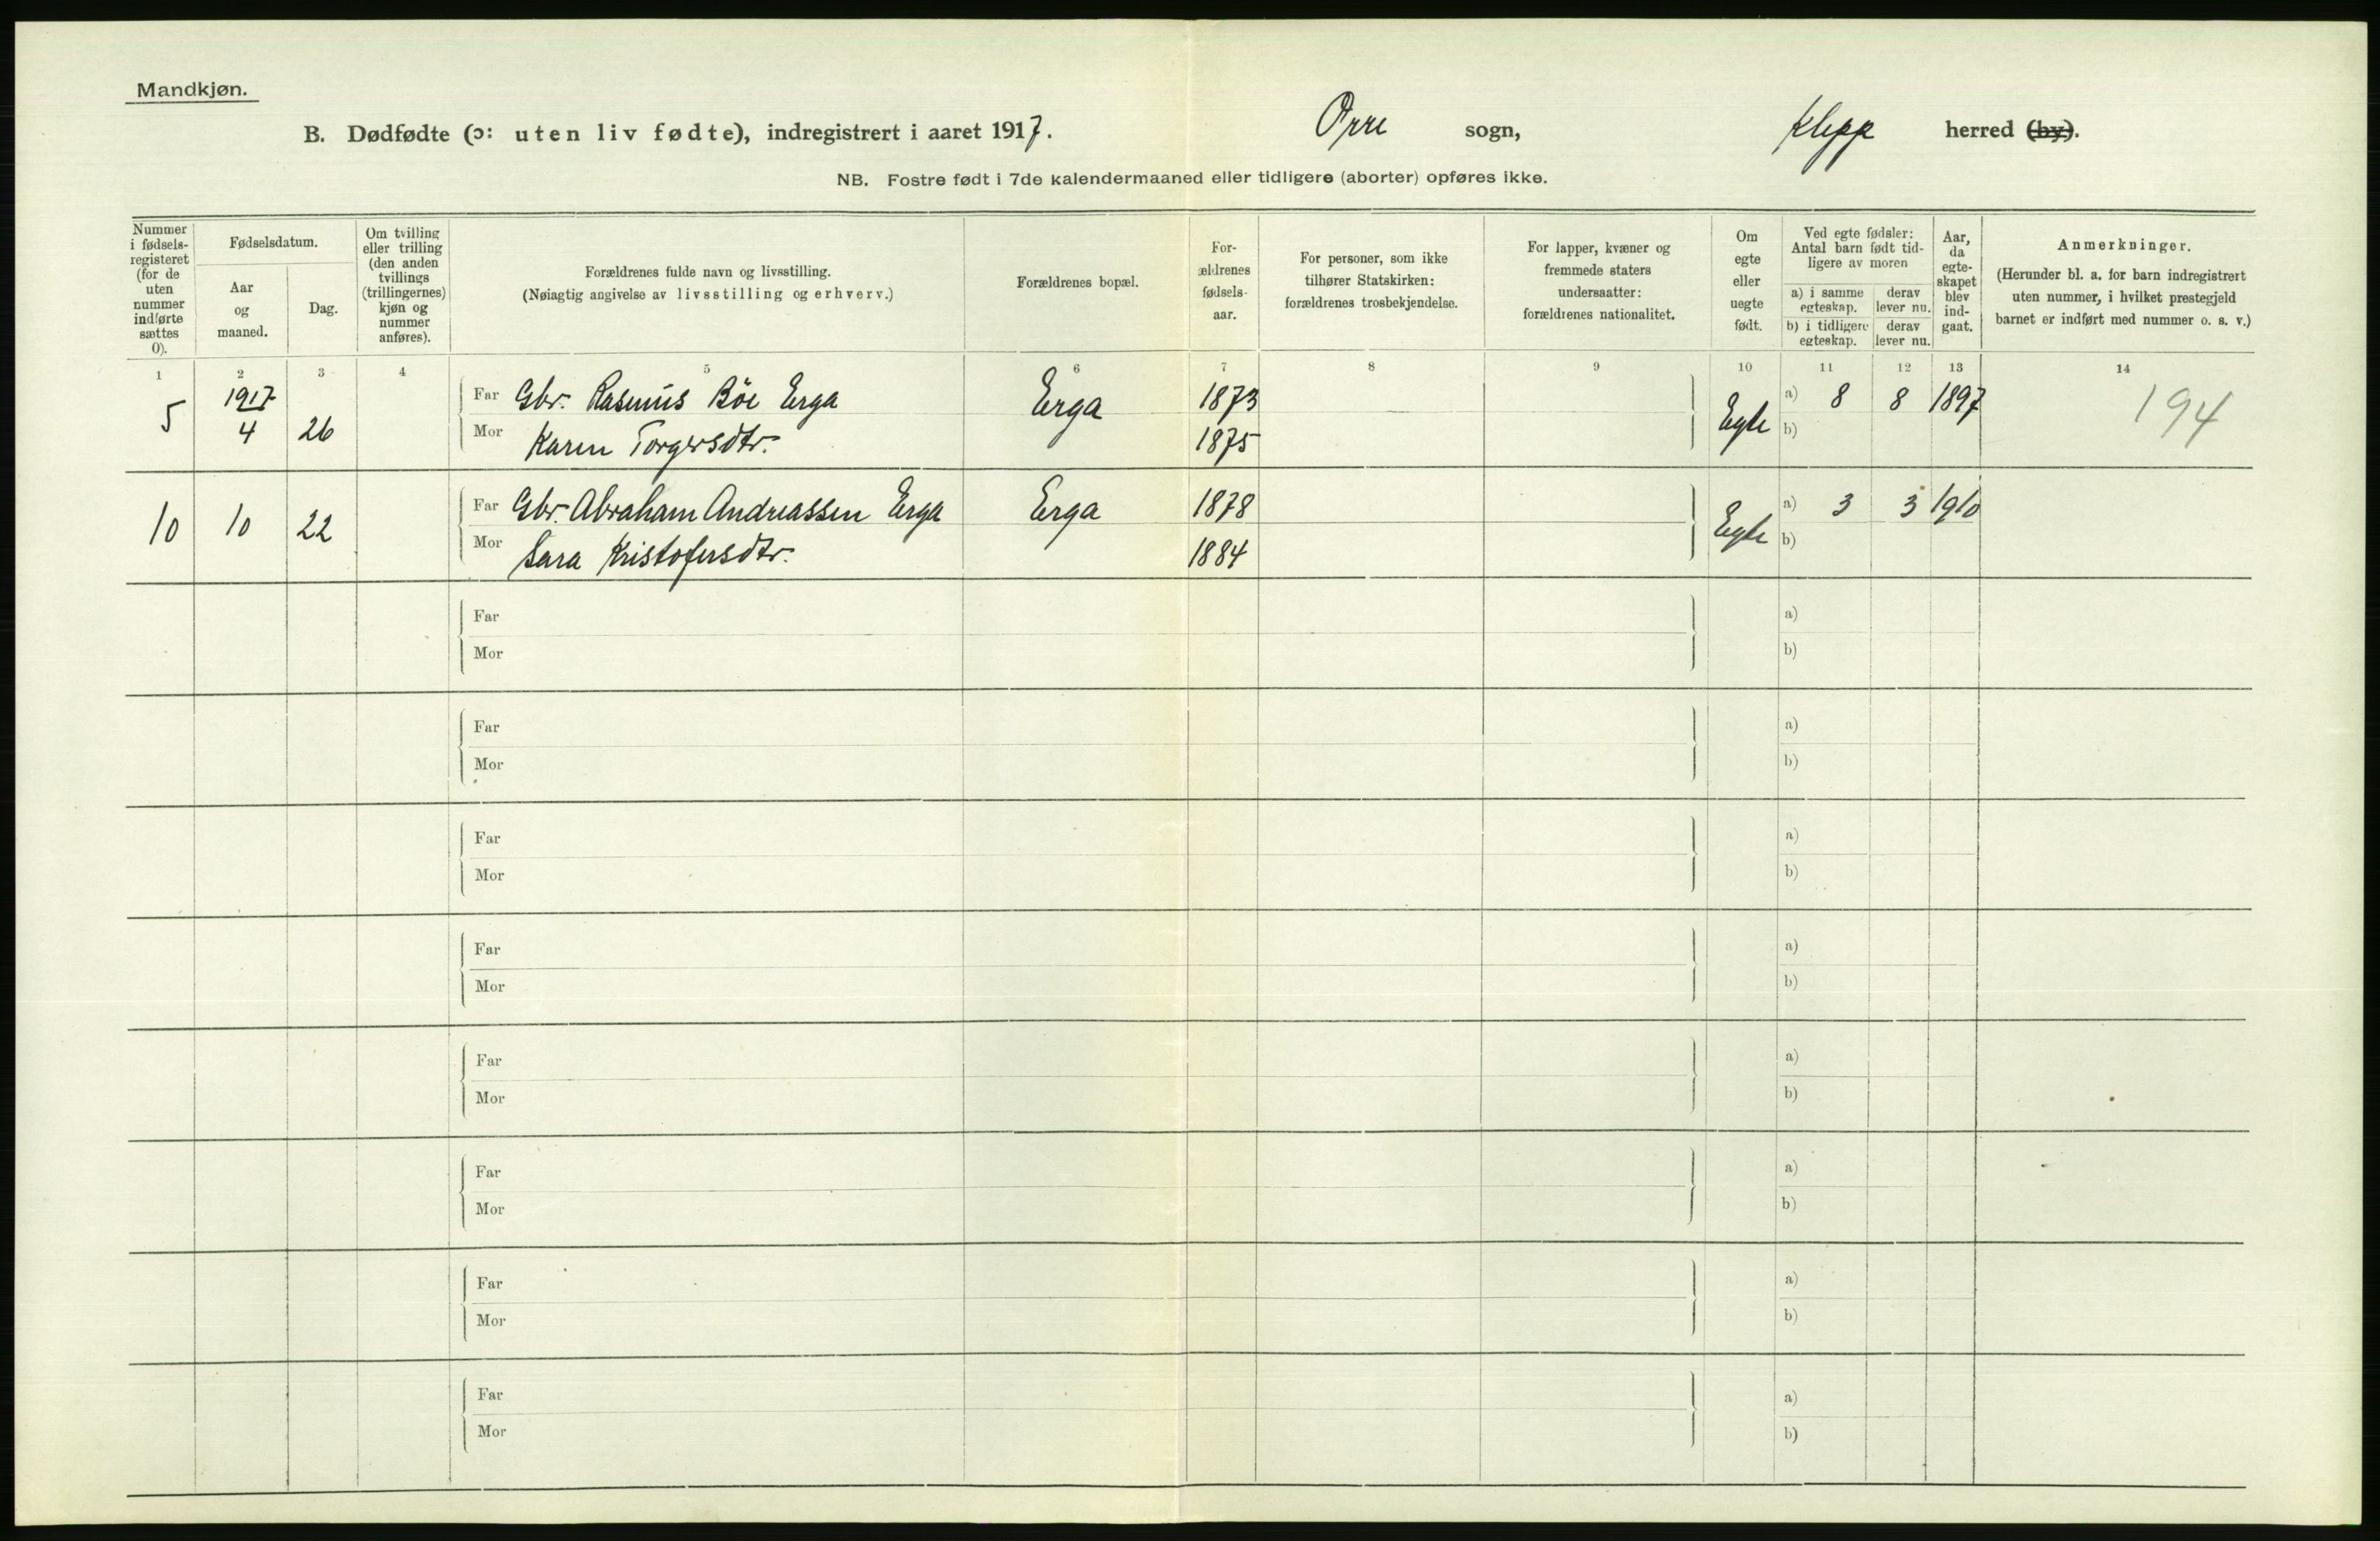 Mandkjøn.
B. Dødfødte (ɔ: uten liv fødte), indregistrert i aaret 1917. Orre sogn, Klepp herred (by).
NB. Fostre født i 7de kalendermaaned eller tidligere (aborter) opføres ikke.
Nummer i fødsels-registeret (for de uten nummer indførte sættes 0).
Fødselsdatum.
Aar og maaned.
Dag.
Om tvilling eller trilling (den anden tvillings (trillingernes) kjøn og nummer anføres).
Forældrenes fulde navn og livsstilling.
(Nøiagtig angivelse av livsstilling og erhverv.)
Forældrenes bopæl.
For-ældrenes fødsels-aar.
For personer, som ikke tilhører Statskirken: forældrenes trosbekjendelse.
For lapper, kvæner og fremmede staters undersaatter: forældrenes nationalitet.
Om egte eller uegte født.
Ved egte fødsler: Antal barn født tid-ligere av moren
a) i samme egteskap. derav lever nu.
b) i tidligere egteskap. derav lever nu.
Aar, da egte-skapet blev ind-gaat.
Anmerkninger.
(Herunder bl. a. for barn indregistrert uten nummer, i hvilket prestegjeld barnet er indført med nummer o. s. v.)
1 2 3 4 5 6 7 8 9 10 11 12 13 14
5 1917 4 26 Far Gbr. Rasmus Böe Erga Erga 1873 Egte a) 8 8 1897 194
Mor Karen Torgersdtr. 1875 b)
10 10 22 Far Gbr. Abraham Andreassen Erga Erga 1878 Egte a) 3 3 1910
Mor Sara Kristofersdtr. 1884 b)
Far a)
Mor b)
Far a)
Mor b)
Far a)
Mor b)
Far a)
Mor b)
Far a)
Mor b)
Far a)
Mor b)
Far a)
Mor b)
Far a)
Mor b)